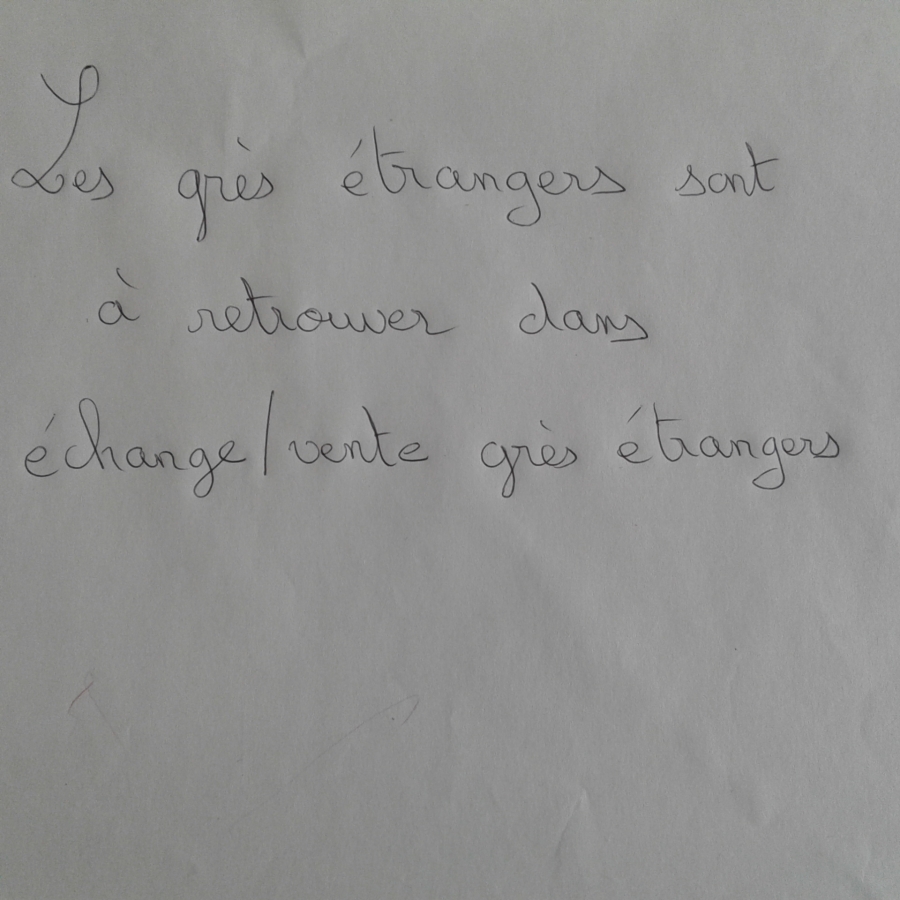 Les grès étrangers sont
à retrouver dans
échange/vente grès étrangers